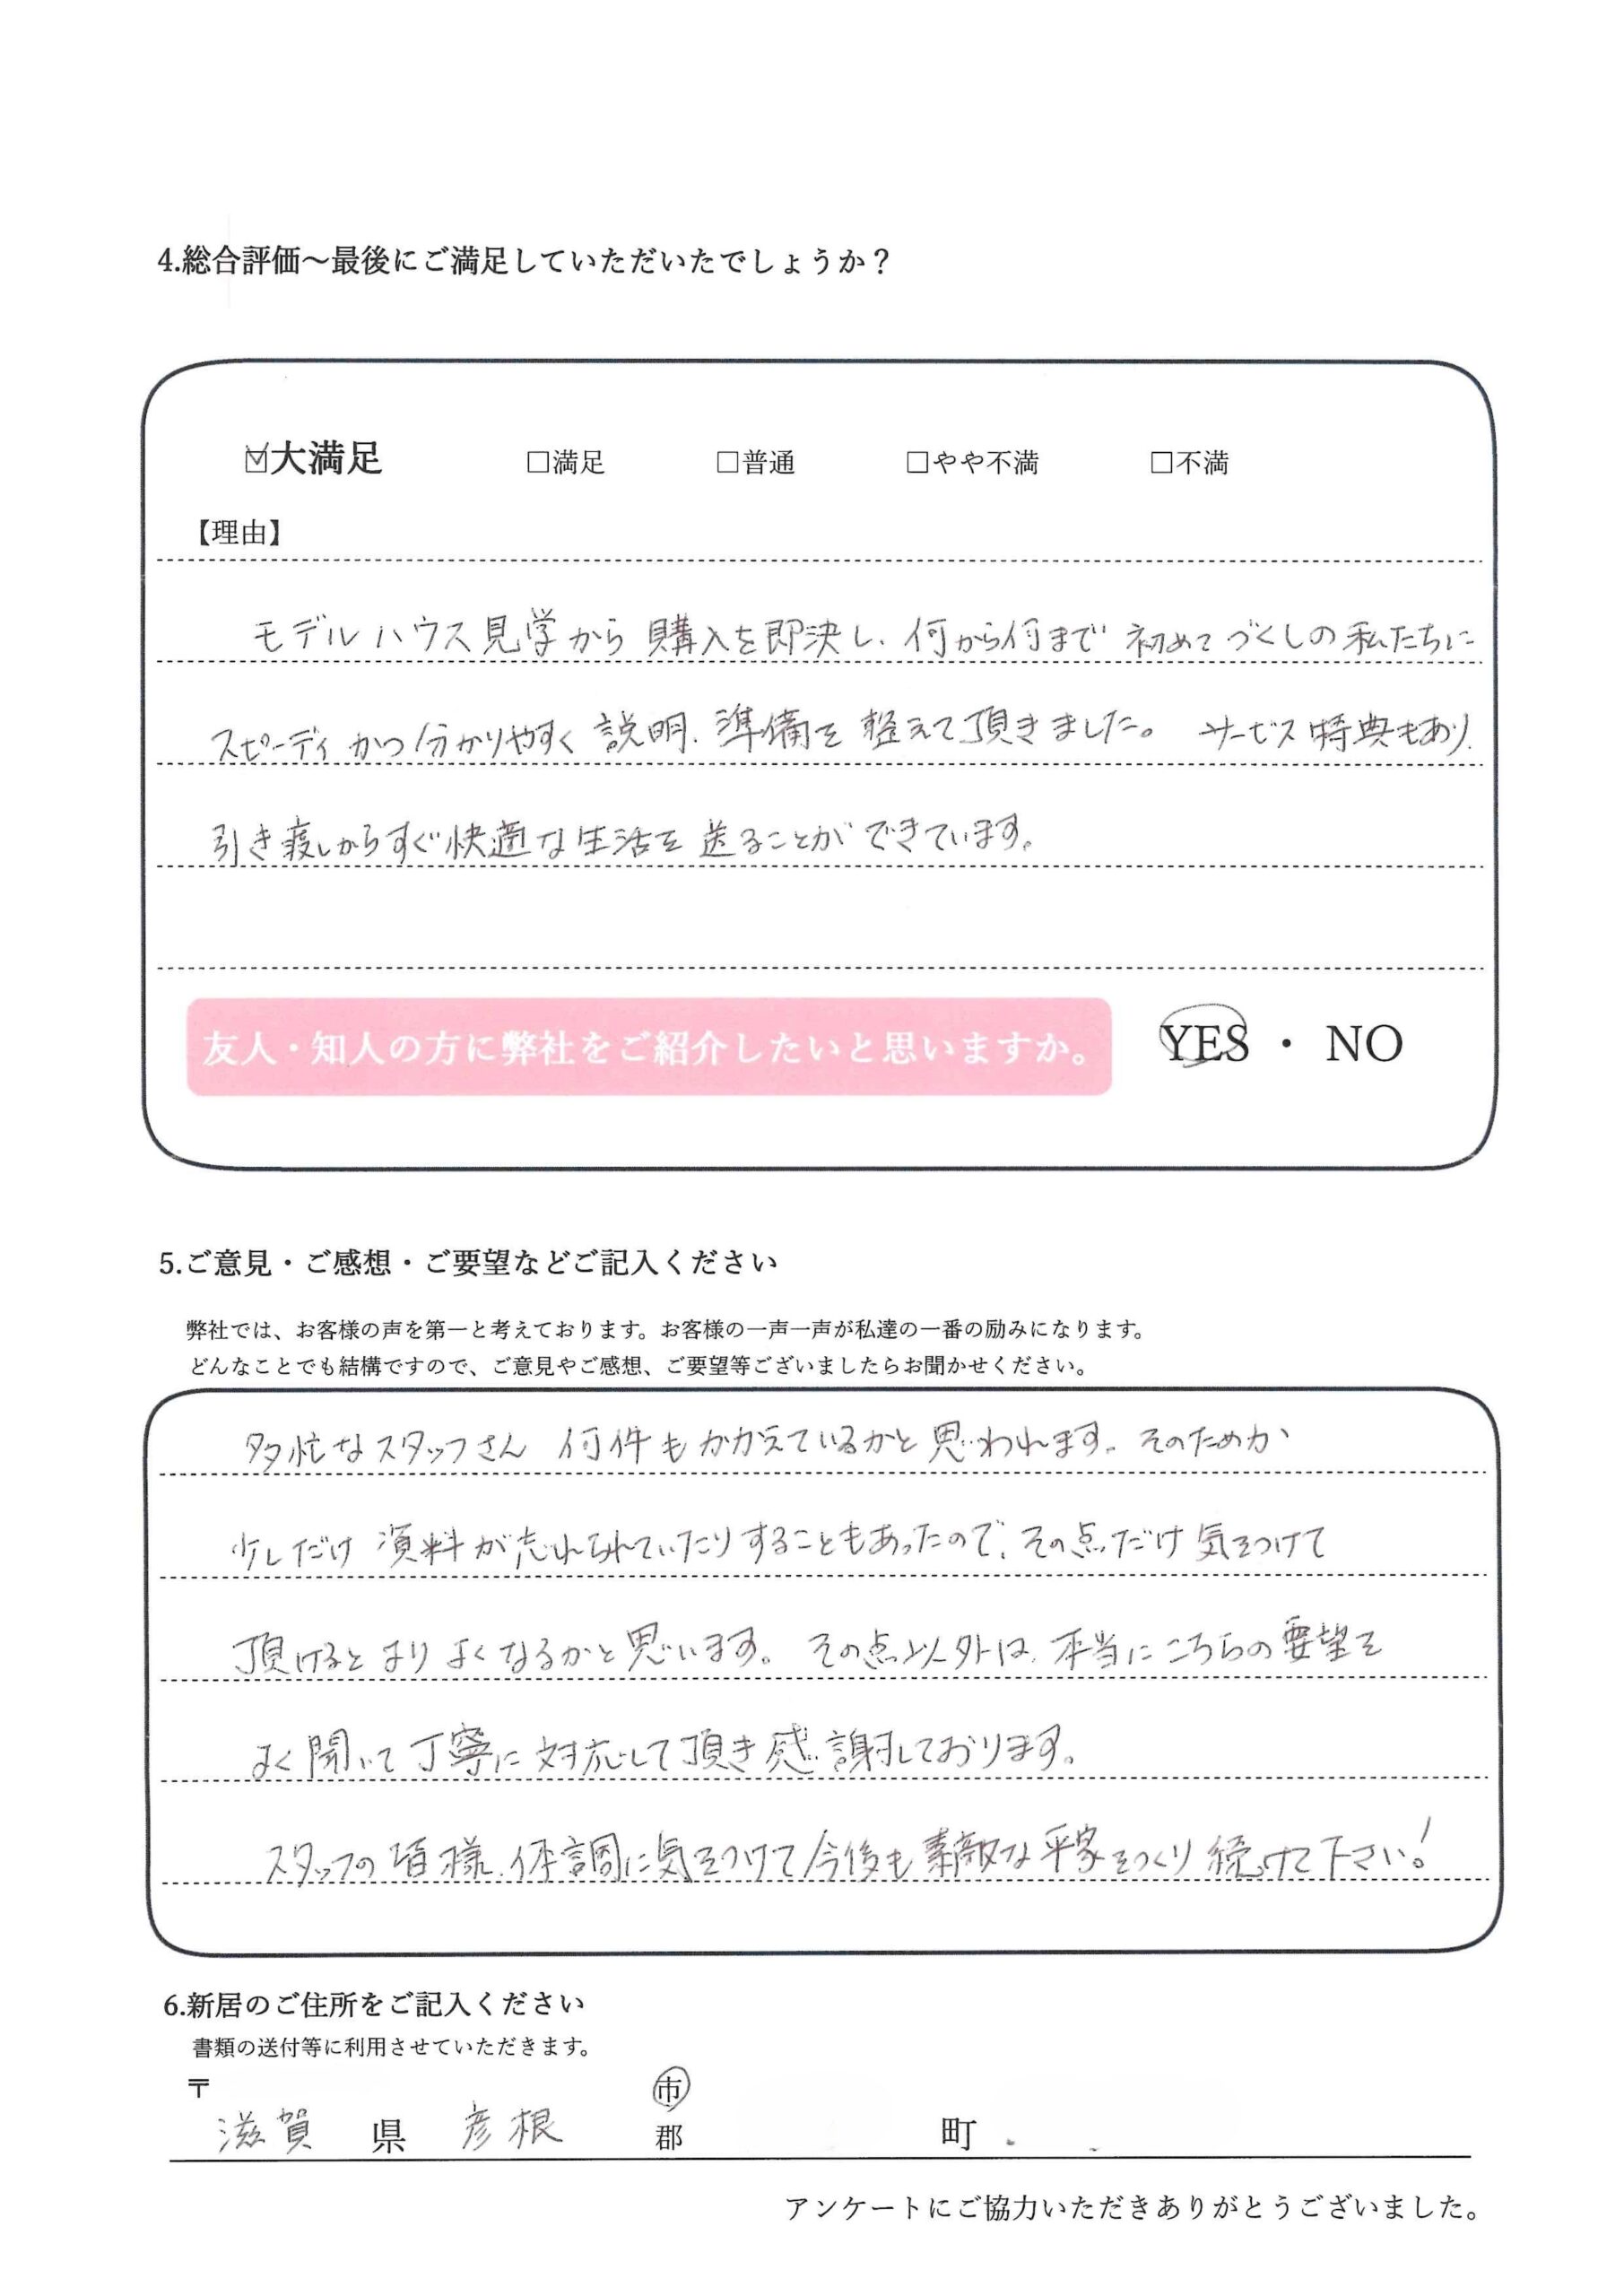 4.総合評価～最後にご満足していただいたでしょうか？
☑大満足 □満足 □普通 □やや不満 □不満
【理由】
モデルハウス見学から購入を即決し、何から何まで初めてづくしの私たちに
スピーディかつ分かりやすく説明、準備を整えて頂きました。 サービス特典もあり、
引き渡しからすぐ快適な生活を送ることができています。
友人・知人の方に弊社をご紹介したいと思いますか。 YES ・ NO
5.ご意見・ご感想・ご要望などご記入ください
弊社では、お客様の声を第一と考えております。お客様の一声一声が私達の一番の励みになります。
どんなことでも結構ですので、ご意見やご感想、ご要望等ございましたらお聞かせください。
多忙なスタッフさん 何件もかかえているかと思われます。そのためか
少しだけ資料が忘れられていたりすることもあったので、その点だけ気をつけて
頂けるとよりよくなるかと思います。 その点以外は、本当にこちらの要望を
よく聞いて丁寧に対応して頂き感謝しております。
スタッフの皆様、体調に気をつけて今後も素敵な平家をつくり続けて下さい！
6.新居のご住所をご記入ください
書類の送付等に利用させていただきます。
〒
滋賀 県 彦根 市 郡 町
アンケートにご協力いただきありがとうございました。